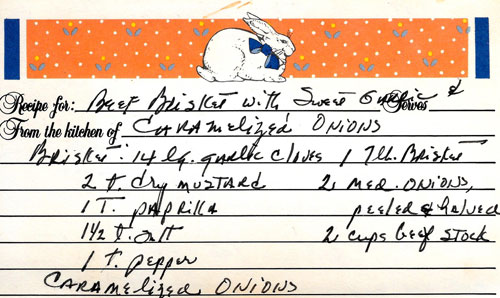 Recipe for: Beef Brisket with Sweet Garlic &
Serves
From the kitchen of Caramelized Onions
Brisket: 14 lg. garlic cloves 1 7lb. Brisket
2 t. dry mustard 2 med. onions,
1 T. paprika peeled & halved
1 1/2 t. salt 2 cups beef stock
1 t. pepper
Caramelized Onions